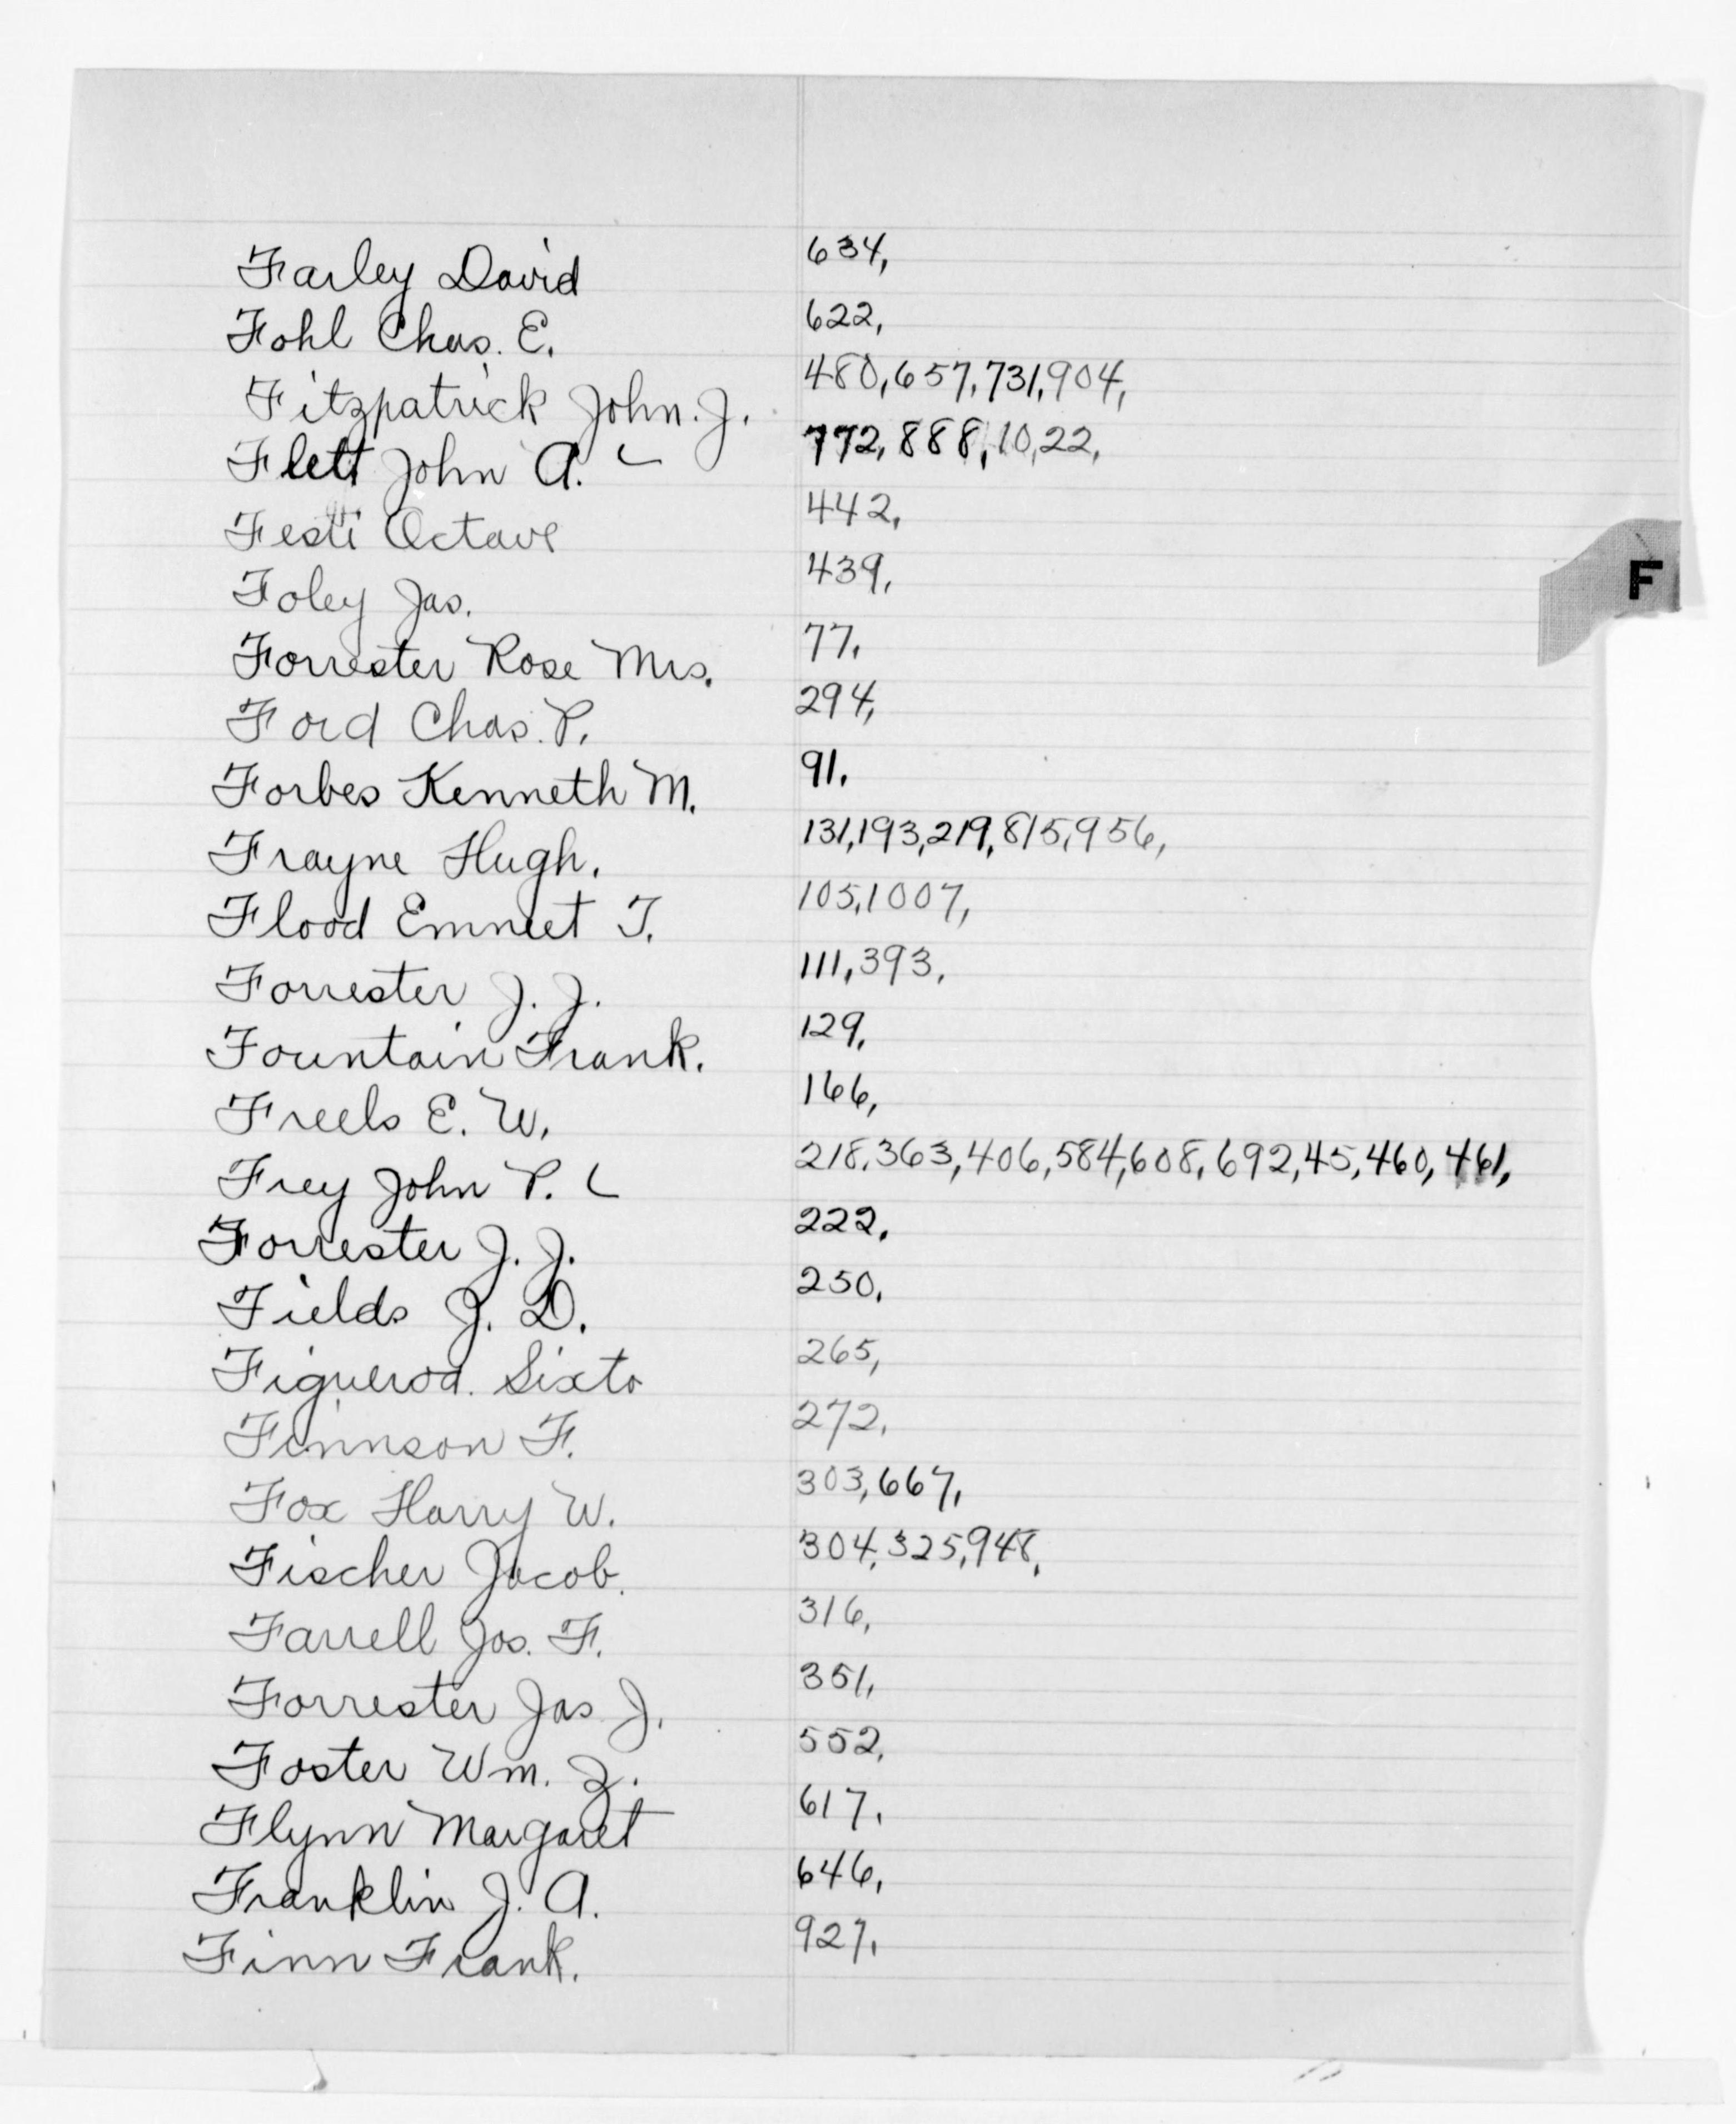 Farley David 634,
Fohl Chas. E. 622,
Fitzpatrick John. J. 480,657,731,904,
Flett John A. 772,888,10,22,
Festi Octave 442,
F
Foley Jas. 439,
Forrester Rose Mrs. 77,
Ford Chas. P. 294,
Forbes Kenneth M. 91,
Frayne Hugh. 131,193,219,815,956,
Flood Emmet T. 105,1007,
Forrester J. J. 111,393,
Fountain Frank. 129,
Freels E. W. 166,
Frey John P. 218,363,406,584,608,692,45,460,461,
Forrester J. J. 222,
Fields J. D. 250,
Figueroa. Sixto 265,
Finnson F. 272,
Fox Harry W. 303,667,
Fischer Jacob. 304,325,948,
Farrell Jos. F. 316,
Forrester Jas J. 351,
Foster Wm. Z. 552,
Flynn Margaret 617,
Franklin J. A. 646,
Finn Frank. 927,